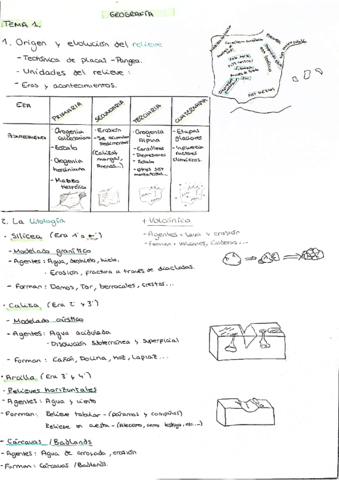 GEOGRAFÍA
TEMA 1.
1. Origen y evolución del relieve
- Tectónica de placas - Pangea.
- Unidades del relieve:
- Eras y acontecimientos.
ERA
PRIMARIA
SECUNDARIA
TERCIARIA
CUATERNARIA
- Orogenia
- Zócalo
- Orogenia
herciniana
- Macizo
- Erosión
- Se acumulan
sedimentos
(Caliza,
margas,
Arenas...)
- Orogenia
Alpina
- Cordilleras
- Depresiones
- Zócalo
- Etapas
glaciares
- Influencia
2. La litología
+ Volcánico
- Silícea (Era 1ª
- Agentes: Lava y erosión
- Forman: Volcanes, Calderas...
- Modelado granítico
- Agentes: Agua, deshielo, hielo.
- Erosión, fractura a través de diaclasas.
- Forman: Domos, Tor, berrocales, crestas...
- Caliza (Era 2ª y 3ª)
- Modelado cárstico
- Agentes: Agua acidulada
- Disolución subterránea y superficial
- Forman: Cañón, Dolina, Hoz, Lapiaz...
- Arcilla (Era 3ª y 4ª)
- Relieves horizontales
- Agentes: Agua y viento
- Forman: Relieve tabular - (páramos y campiñas)
Relieve en cuesta - (Alcarria, cerro testigo, etc...)
- Cárcavas / Badlands
- Agentes: Agua de arroyada, erosión
- Forman: Cárcavas / Badlands.